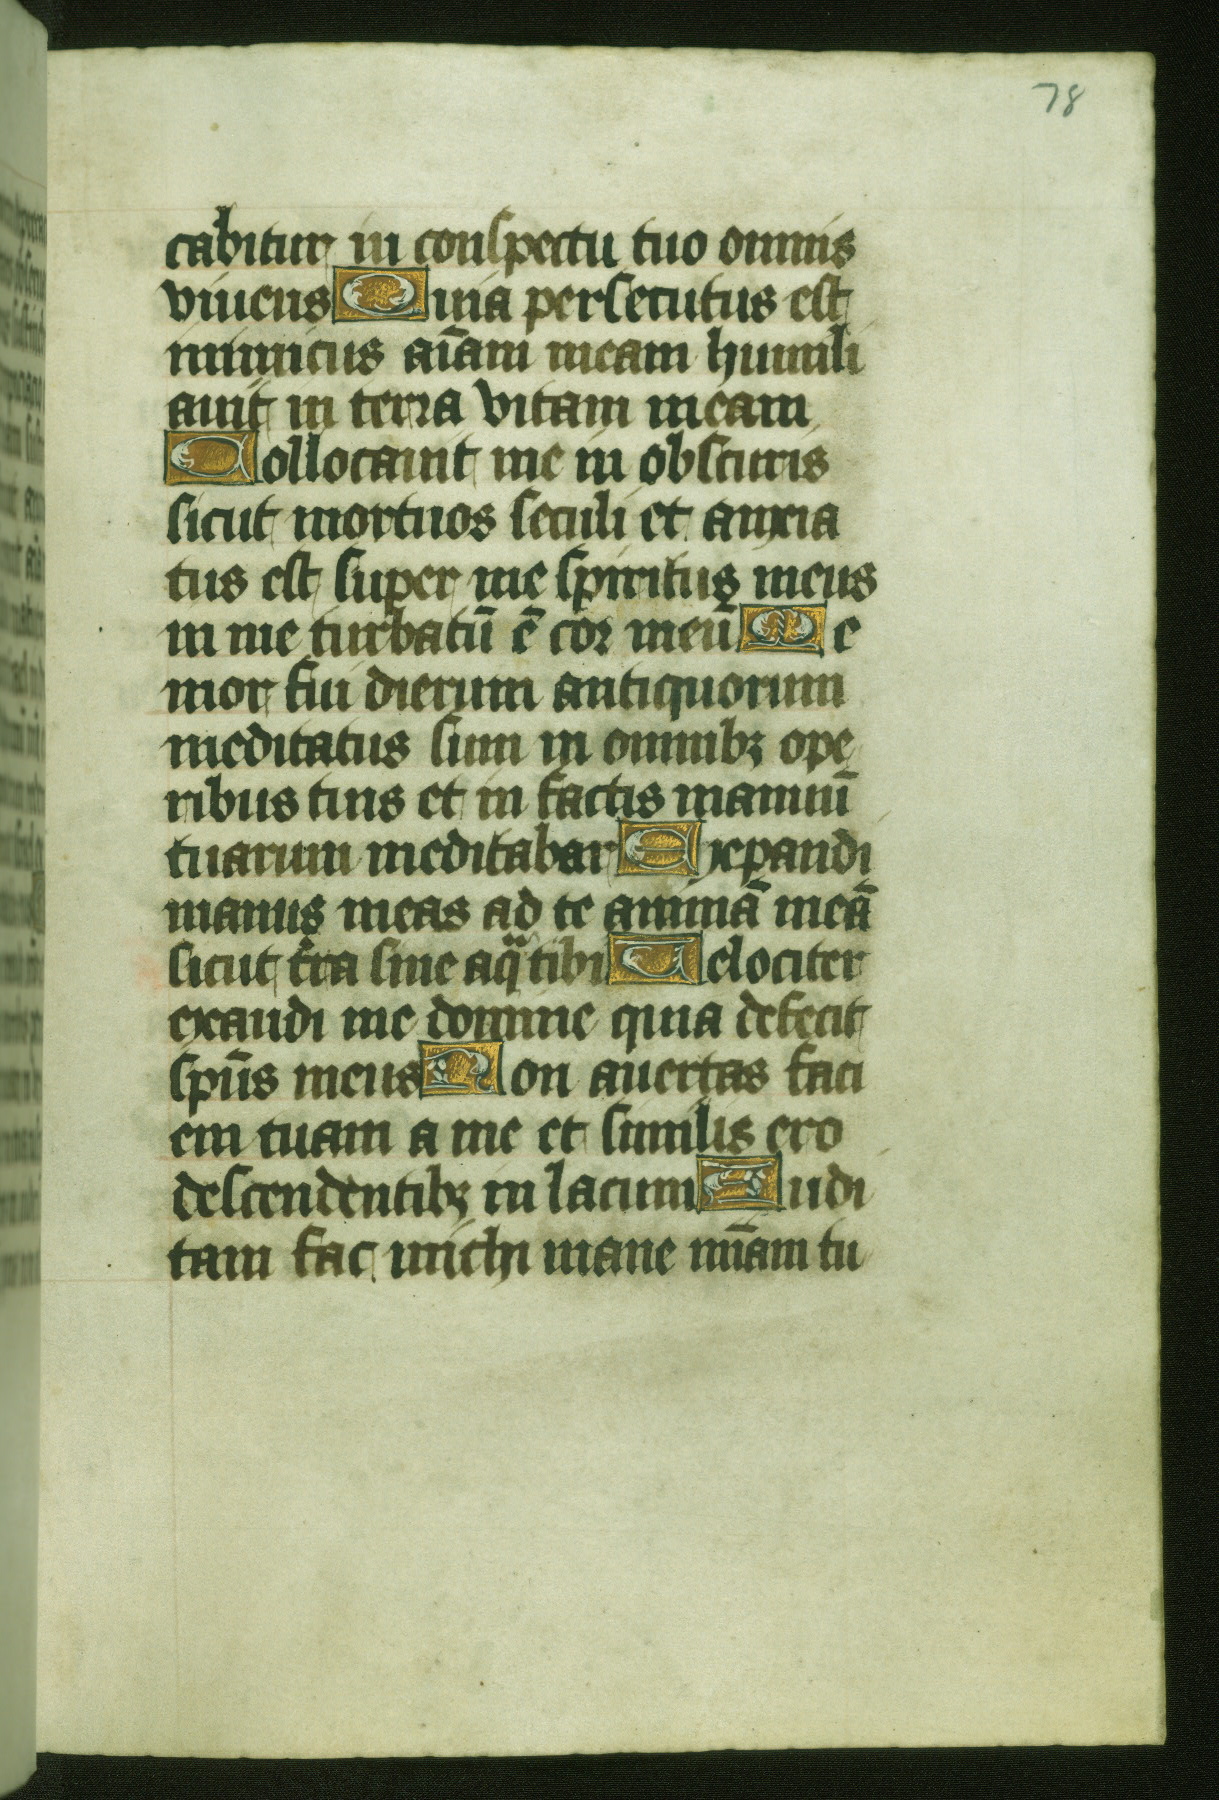 78
cabitur in conspectu tuo omnis
viuens Quia persecutus est
inimicus aīam meam humili
auit in terra vitam meam
Collocauit me in obscuris
sicut mortuos seculi et anxia
tus est super me spiritus meus
in me turbatū ē cor meū Me
mor fui dierum antiquorum
meditatus sum in omnibꝫ ope
ribus tuis et in factis manuū
tuarum meditabar Expandi
manus meas ad te animā meā
sicut tr̄a sine aqͣ tibi Uelociter
exaudi me domine quia defecit
spūs meus Non auertas faci
em tuam a me et similis ero
descendentibꝫ in lacum Audi
tam fac michi mane mīam tu